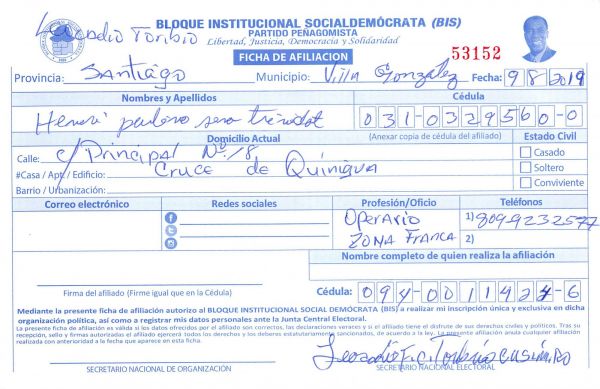 BLOQUE INSTITUCIONAL SOCIALDEMÓCRATA (BIS)
PARTIDO PEÑAGOMISTA
Leocadio Toribio
Libertad, Justicia, Democracia y Solidaridad
FICHA DE AFILIACION
53152
Provincia: Santiago Municipio: Villa González Fecha: 9 8 2019
Nombres y Apellidos Cédula
031-0329560-0
Domicilio Actual (Anexar copia de cédula del afiliado) Estado Civil
Calle: c/ Principal Nº 18 Casado
#Casa / Apt / Edificio: Cruce de Quinigua Soltero
Barrio / Urbanización: Conviviente
Correo electrónico Redes sociales Profesión/Oficio Teléfonos
Operario 1) 809-9232577
Zona Franca 2)
Nombre completo de quien realiza la afiliación
Firma del afiliado (Firme igual que en la Cédula) Cédula: 094-0011424-6
Mediante la presente ficha de afiliación autorizo al BLOQUE INSTITUCIONAL SOCIAL DEMÓCRATA (BIS) a realizar mi inscripción única y exclusiva en dicha
organización política, así como a registrar mis datos personales ante la Junta Central Electoral.
La presente ficha de afiliación es valida si los datos ofrecidos por el afiliado son correctos, las declaraciones veraces y si el afiliado tiene el disfrute de sus derechos civiles y políticos. Tras su
recepción, sello y firmas autorizadas el afiliado ejercerá todos los derechos y los deberes estatutariamente sancionados, de acuerdo a la ley. La presente afiliación anula cualquier afiliación
realizada con anterioridad a la fecha que aparece en esta ficha.
SECRETARIO NACIONAL DE ORGANIZACIÓN SECRETARIO NACIONAL ELECTORAL